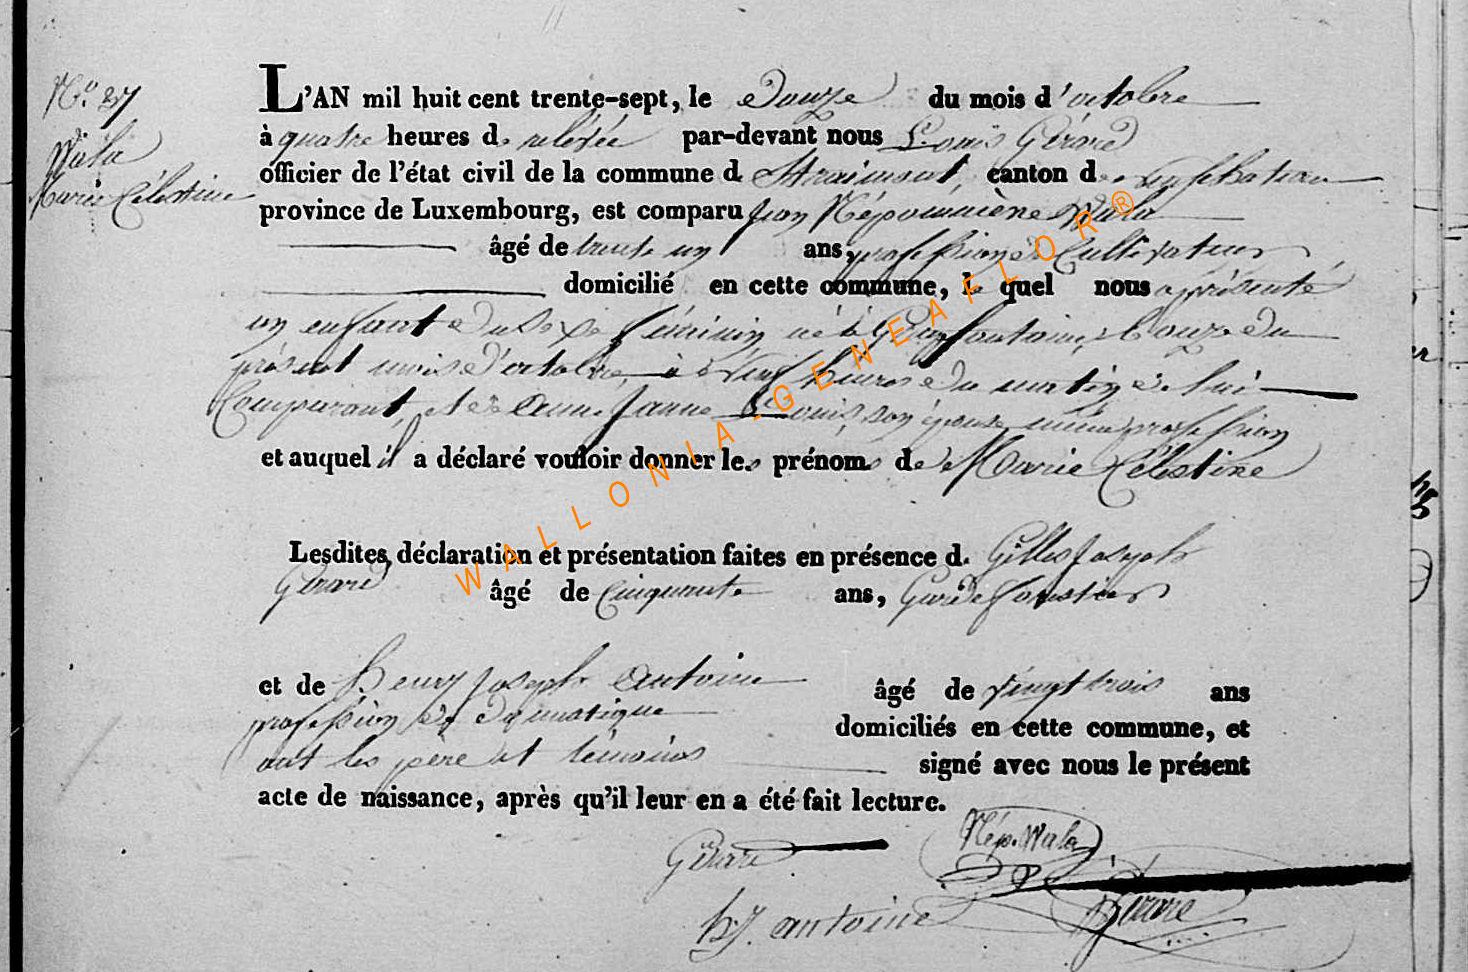 N.° 27
Wala
Marie Célestine
L'AN mil huit cent trente-sept, le Douze du mois d'octobre
à quatre heures de relévée par-devant nous Louis Gérard
officier de l'état civil de la commune de Straimont, canton de neufchateau
province de Luxembourg, est comparu Jean Népomucène Wala
âgé de trente un ans, profession de Cultivateur
domicilié en cette commune, le quel nous a présenté
un enfant du Sexe féminin né à Grapfontaine, le onze du
présent mois d'octobre, à heures du matin de lui
Comparant, et de Anne Jeanne Louis, son épouse même profession
et auquel il a déclaré vouloir donner les prénoms de Marie Célestine
Lesdites déclaration et présentation faites en présence de Gilles Joseph
Gérard âgé de Cinquante ans, Garde forestier
et de henry Joseph Antoine âgé de vingt trois ans
profession de domestique domiciliés en cette commune, et
ont les père et témoins signé avec nous le présent
acte de naissance, après qu'il leur en a été fait lecture.
Gérard Nép. Wala
hJ. antoine Gérard
WALLONIA-GENEAFLOR®